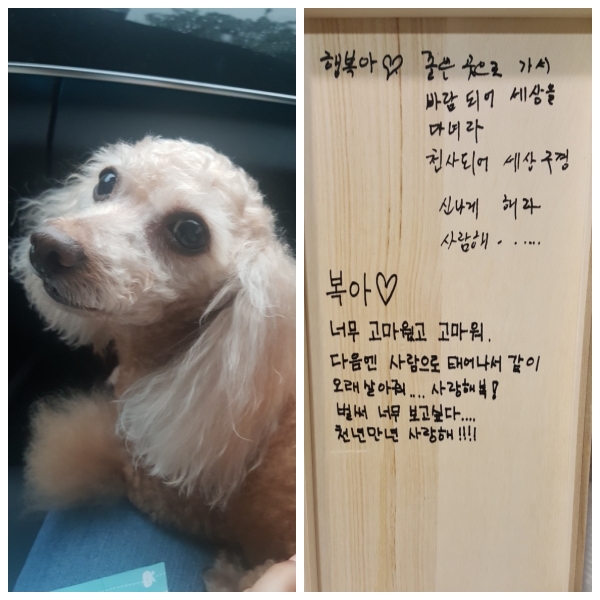 행복아♡ 좋은 곳으로 가서
바람 되어 세상을
다녀라
천사되어 세상구경
신나게 해라
사랑해.....
복아♡
너무 고마웠고 고마워.
다음엔 사람으로 태어나서 같이
오래 살아줘.... 사랑해복!
벌써 너무 보고싶다....
천년만년 사랑해!!!!